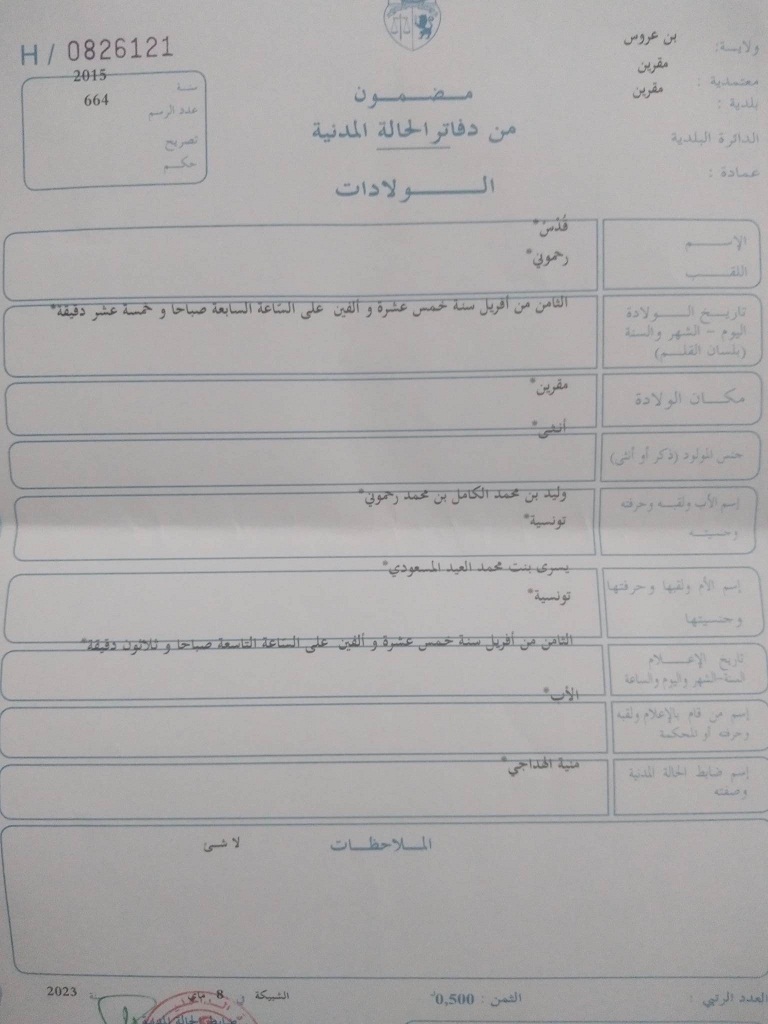 H / 0826121
ولايـة: بن عروس
معتمدية : مقرين
بلدية : مقرين
الدائرة البلدية
عمادة :
سنة 2015
عدد الرسم 664
تصريح
حكـم
مضمـــون
من دفاتر الحالة المدنية
الـــولادات
الإســم قُدْسْ*
اللقـب رحموني*
تاريـخ الـــولادة الثامن من أفريل سنة خمس عشرة و ألفين على السّاعة السابعة صباحا و خمسة عشر دقيقة*
اليوم – الشهر والسنة
(بلسان القلـم)
مكــان الولادة مقرين*
جنس المولود (ذكر أو أنثى) أنثى*
إسم الأب ولقبـه وحرفته وليد بن محمد الكامل بن محمد رحموني*
وجنسيتـه تونسية*
إسم الأم ولقبها وحرفتها يسرى بنت محمد العيد المسعودي*
وجنسيتها تونسية*
تاريخ الإعــلام الثامن من أفريل سنة خمس عشرة و ألفين على السّاعة التاسعة صباحا و ثلاثون دقيقة*
السنة-الشهر واليوم والساعة
إسم من قام بالإعلام ولقبه الأب*
وحرفته أو المحكمة
إسم ضابط الحالة المدنية منية الهداجي*
وصفته
الملاحظــات
لا شئ
العدد الرتبي :
الثمن : 0,500
الشبيكة في 8 ماي سنة 2023
ضابط الحالة المدنية